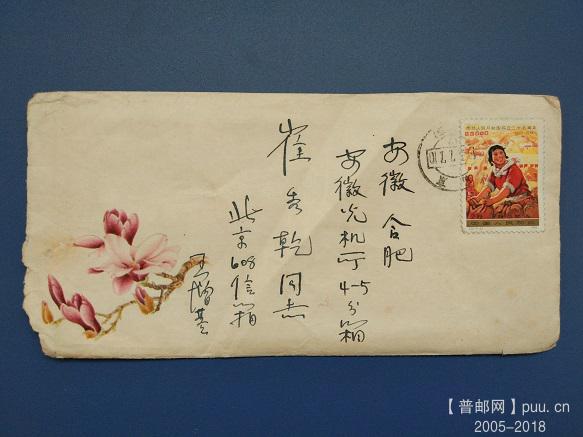 安徽 合肥
安徽光机所4-5分箱
崔 乾同志
北京608信箱
王增
中国人民邮政
【普邮网】puu.cn
2005-2018